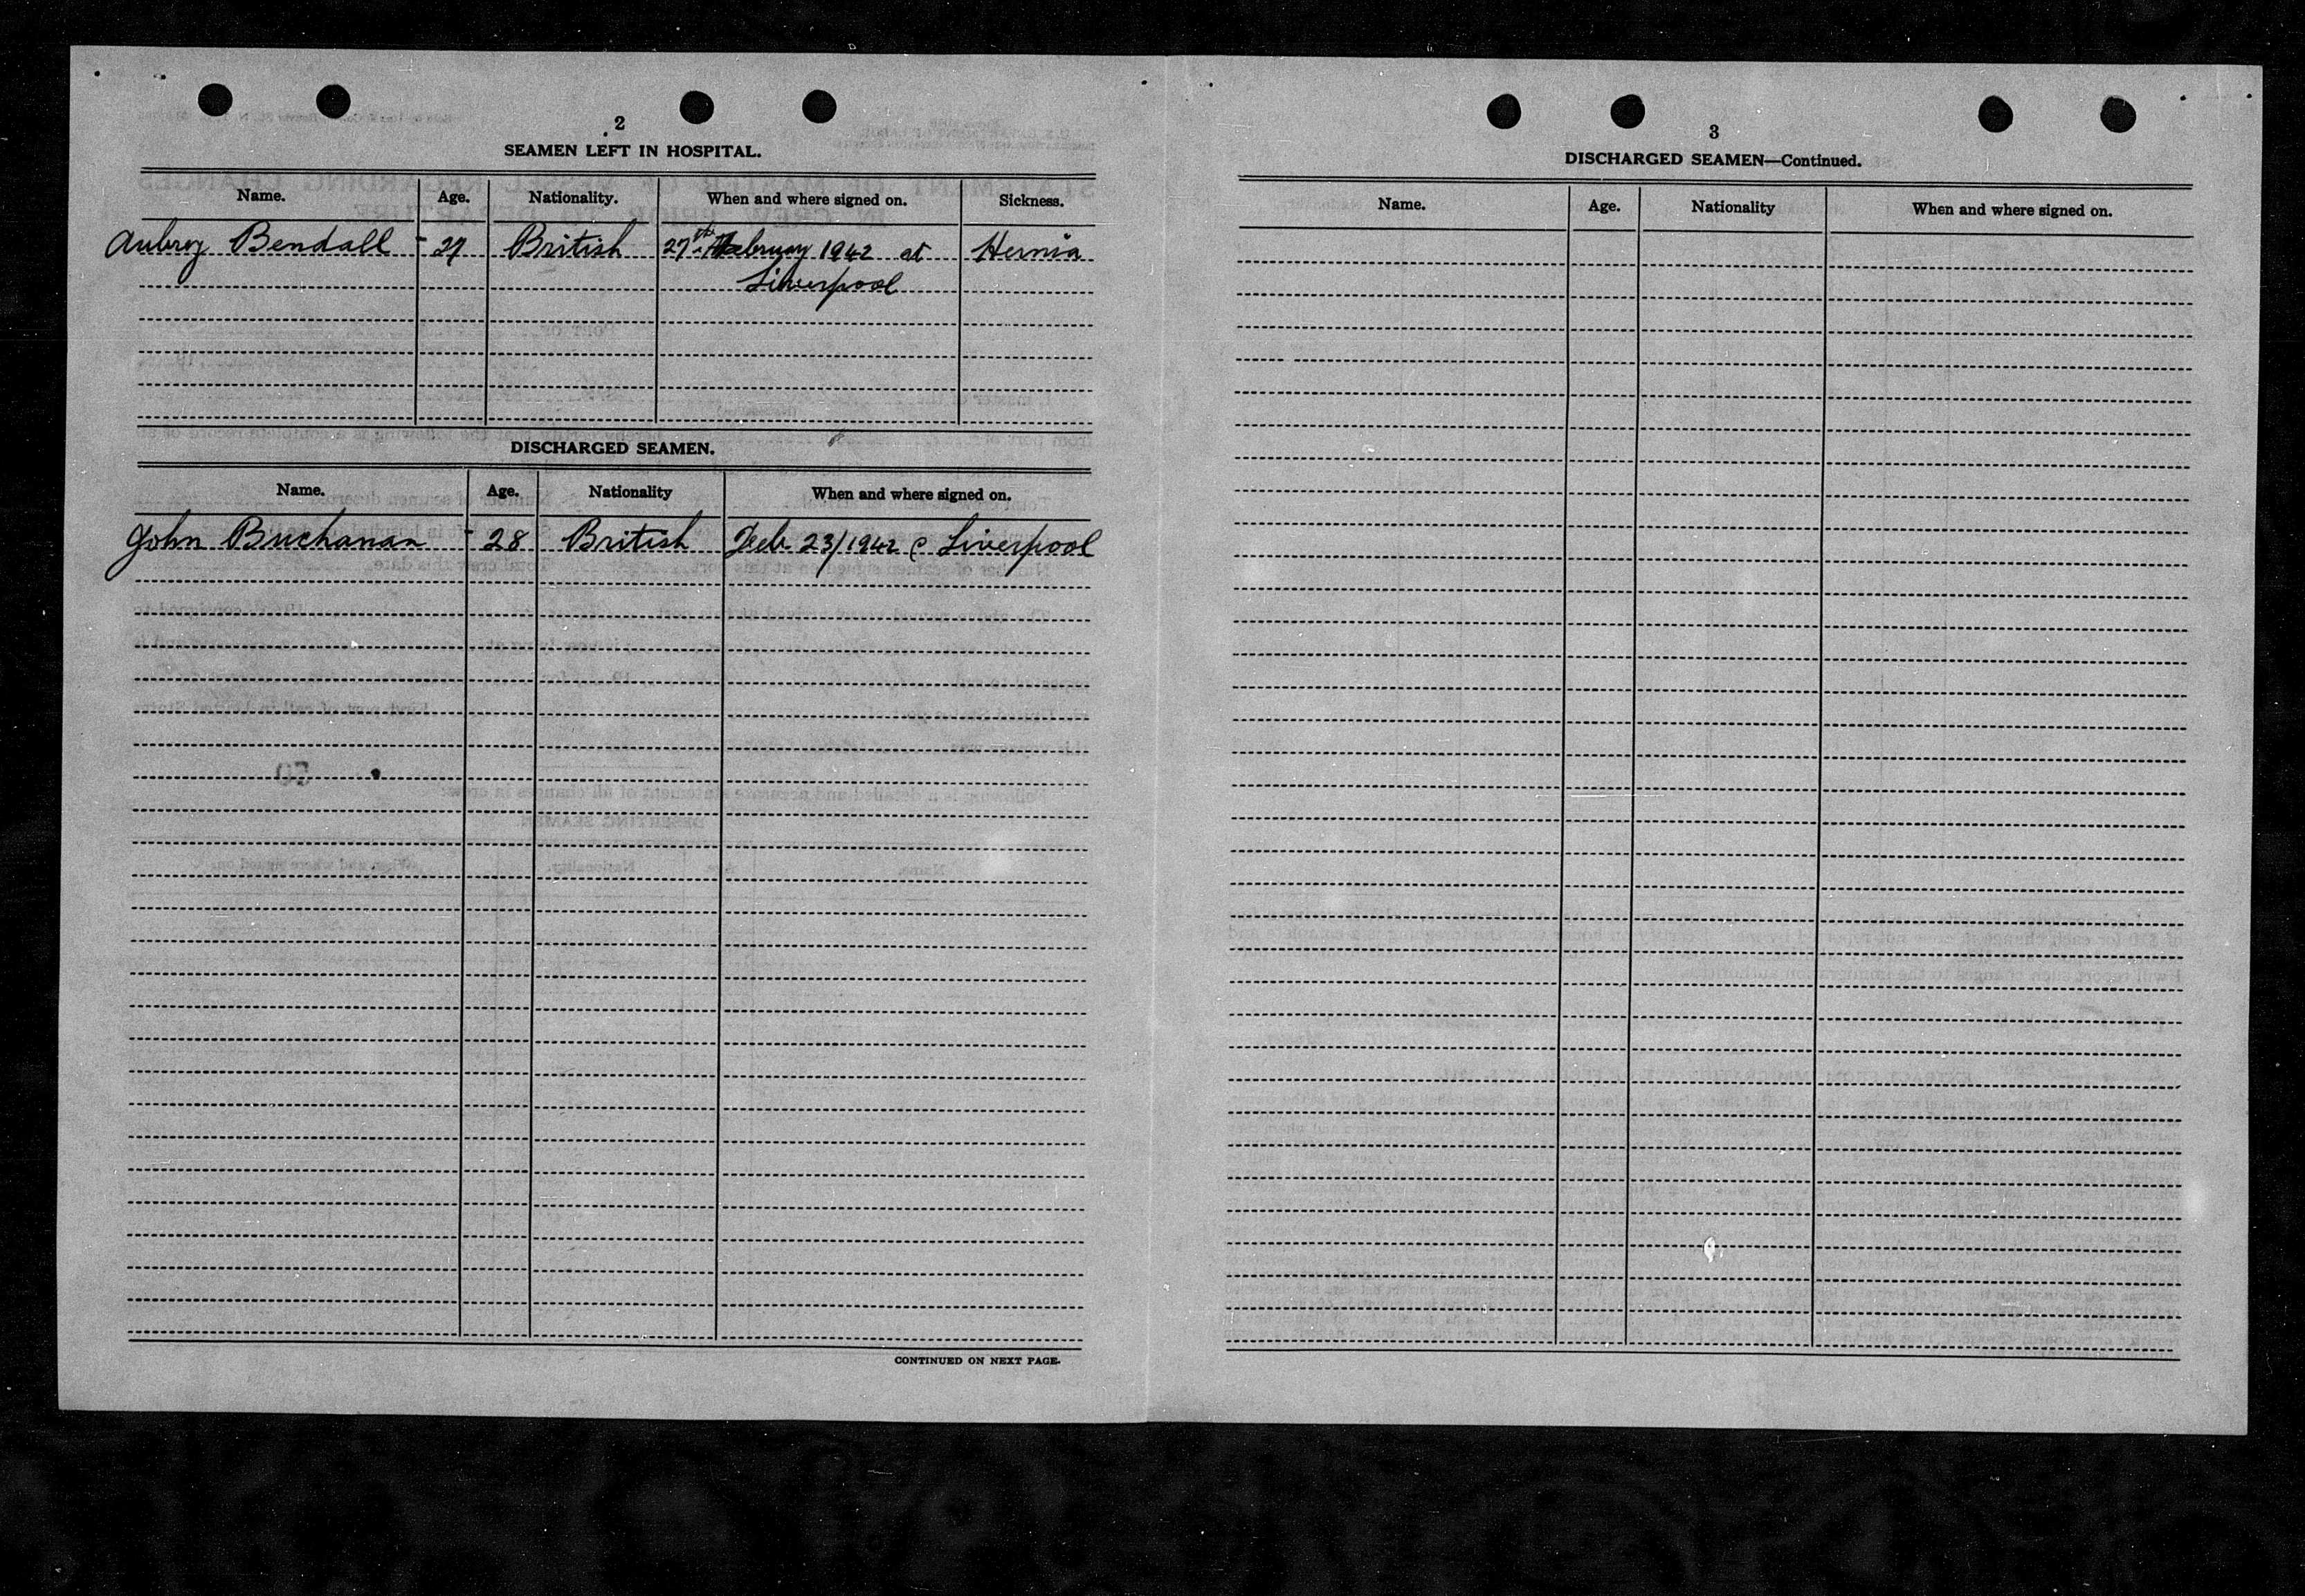 2
SEAMEN LEFT IN HOSPITAL.
Name. Age. Nationality. When and where signed on. Sickness.
Aubrey Bendall - 27 British 27th February 1942 at Hernia
Liverpool
DISCHARGED SEAMEN.
Name. Age. Nationality When and where signed on.
John Buchanan - 28 British Feb 23/1942 @ Liverpool
CONTINUED ON NEXT PAGE.
3
DISCHARGED SEAMEN—Continued.
Name. Age. Nationality When and where signed on.